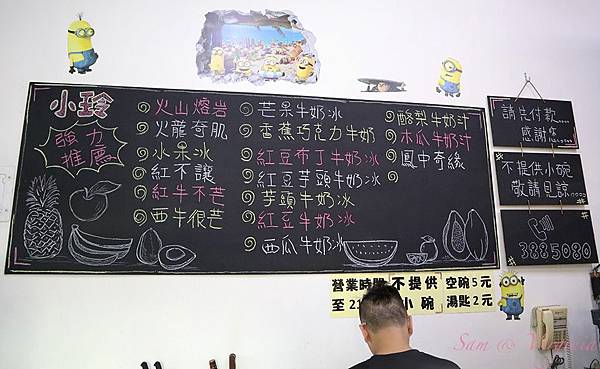 小玲
強力
推薦
火山熔岩
火龍奇肌
水果冰
紅不讓
紅牛不芒
西牛很芒
芒果牛奶冰
香蕉巧克力牛奶
紅豆布丁牛奶冰
紅豆芋頭牛奶冰
芋頭牛奶冰
紅豆牛奶冰
西瓜牛奶冰
酪梨牛奶汁
木瓜牛奶汁
鳳中奇緣
請先付款....
感謝您
不提供小碗
敬請見諒....
3885080
營業時間
至21
不提供
小碗
空碗5元
湯匙2元
Sam @